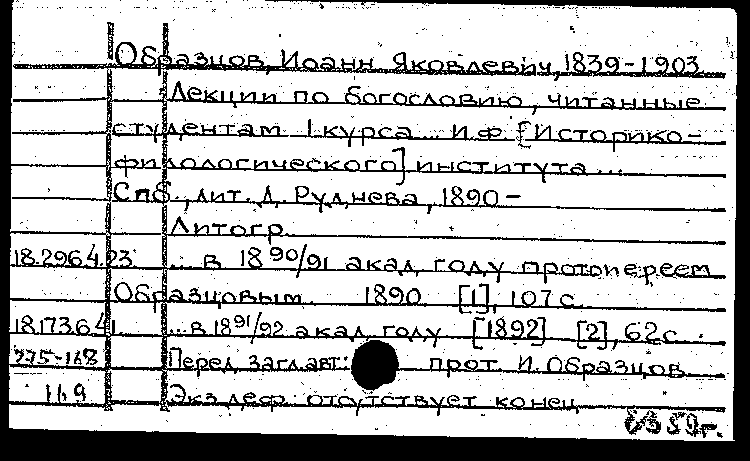 Образцов, Иоанн Яковлевич, 1839-1903
Лекции по богословию, читанные
студентам I курса... И.Ф. [Историко-
филологического] института...
Спб., лит. Д. Руднева, 1890-
Литогр.
18.296.4.23 ...в 1890/91 акад. году протоиереем
Образцовым. 1890. [1], 107 с.
18.173.6.41 ...в 1891/92 акад. году [1892] [2], 62 с.
Перед загл. авт.: прот. И. Образцов
169 Экз. деф. отсутствует конец